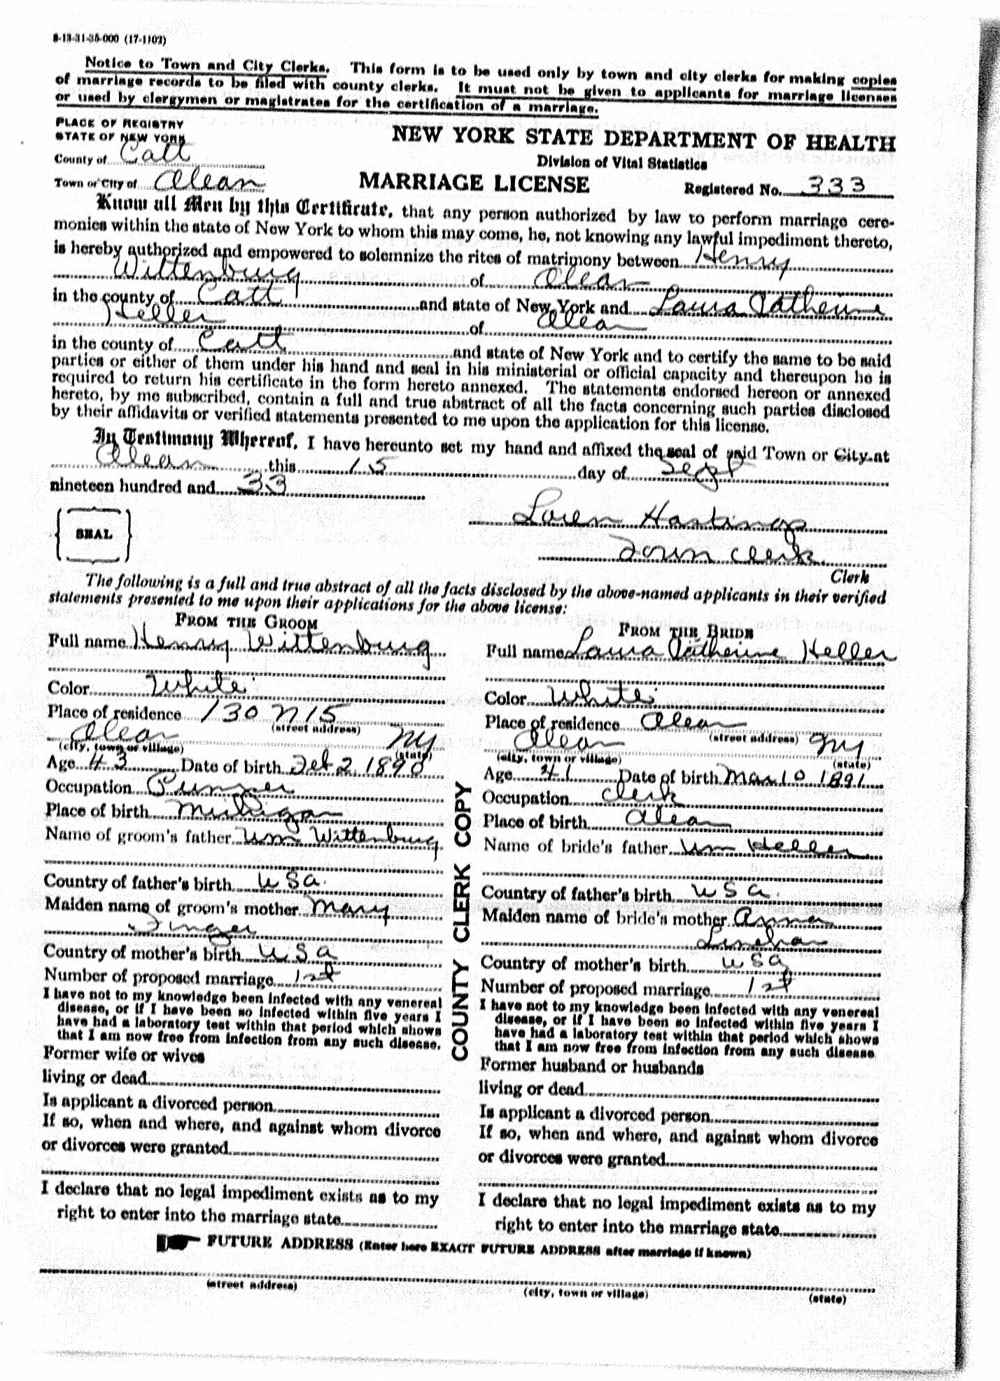 8-13-31-35-000 (17-1103)
Notice to Town and City Clerks. This form is to be used only by town and city clerks for making copies
of marriage records to be filed with county clerks. It must not be given to applicants for marriage licenses
or used by clergymen or magistrates for the certification of a marriage.
PLACE OF REGISTRY
STATE OF NEW YORK
NEW YORK STATE DEPARTMENT OF HEALTH
County of Catt
Division of Vital Statistics
Town or City of Olean
MARRIAGE LICENSE
Registered No. 333
Know all Men by this Certificate, that any person authorized by law to perform marriage cere-
monies within the state of New York to whom this may come, he, not knowing any lawful impediment thereto,
is hereby authorized and empowered to solemnize the rites of matrimony between Henry
Wittenburg of Olean
in the county of Catt and state of New York and Laura Catherine
Heller of Olean
in the county of Catt and state of New York and to certify the same to be said
parties or either of them under his hand and seal in his ministerial or official capacity and thereupon he is
required to return his certificate in the form hereto annexed. The statements endorsed hereon or annexed
hereto, by me subscribed, contain a full and true abstract of all the facts concerning such parties disclosed
by their affidavits or verified statements presented to me upon the application for this license.
In Testimony Whereof, I have hereunto set my hand and affixed the seal of said Town or City at
Olean this 15 day of Sept
nineteen hundred and 33
SEAL
Loren Hastings
Town Clerk
Clerk
The following is a full and true abstract of all the facts disclosed by the above-named applicants in their verified
statements presented to me upon their applications for the above license:
FROM THE GROOM
Full name Henry Wittenburg
Color White
Place of residence 130 N 15
(street address)
Olean NY
(city, town or village) (state)
Age 43 Date of birth Feb 2 1890
Occupation Pumper
Place of birth Michigan
Name of groom's father Wm Wittenburg
Country of father's birth USA.
Maiden name of groom's mother Mary
Finger
Country of mother's birth USA
Number of proposed marriage 1st
I have not to my knowledge been infected with any venereal
disease, or if I have been so infected within five years I
have had a laboratory test within that period which shows
that I am now free from infection from any such disease.
Former wife or wives
living or dead
Is applicant a divorced person
If so, when and where, and against whom divorce
or divorces were granted
I declare that no legal impediment exists as to my
right to enter into the marriage state
COUNTY CLERK COPY
FROM THE BRIDE
Full name Laura Catherine Heller
Color White
Place of residence Olean
(street address)
Olean NY
(city, town or village) (state)
Age 41 Date of birth Mar 10 1891
Occupation Clerk
Place of birth Olean
Name of bride's father Wm Heller
Country of father's birth USA.
Maiden name of bride's mother Anna
Linehan
Country of mother's birth USA
Number of proposed marriage 1st
I have not to my knowledge been infected with any venereal
disease, or if I have been so infected within five years I
have had a laboratory test within that period which shows
that I am now free from infection from any such disease
Former husband or husbands
living or dead
Is applicant a divorced person
If so, when and where, and against whom divorce
or divorces were granted
I declare that no legal impediment exists as to my
right to enter into the marriage state
FUTURE ADDRESS (Enter here EXACT FUTURE ADDRESS after marriage if known)
(street address) (city, town or village) (state)